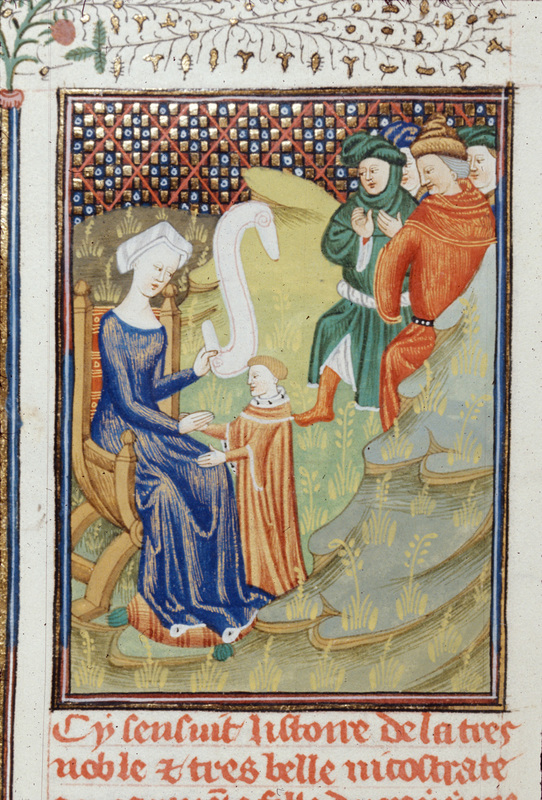 Cy sensuit listoire de la tres
noble & tres belle nicostrate